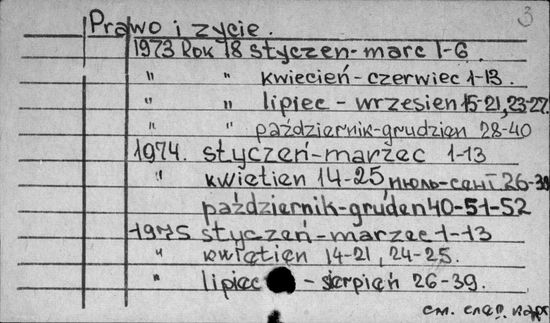 3
Prawo i zycie.
1973 Rok 18 styczen-marc 1-6
" " kwiecień-czerwiec 1-13.
" " lipiec - wrzesien 15-21, 23-27
" " październik-grudzien 28-40
1974. styczeń-marzec 1-13
" kwietien 14-25 июль-сент 26-39
październik-gruden 40-51-52
1975 styczeń-marzec 1-13
" kwiętięn 14-21, 24-25.
" lipiec - sierpięń 26-39.
см. след. карт